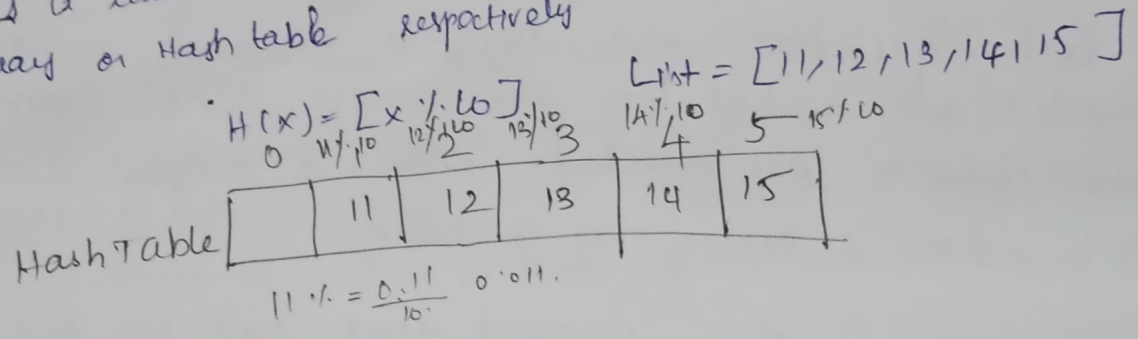 or Hash table respoctively
List = [11, 12, 13, 14, 15]
H(x) = [x % 10]
0 11%10 12%10 2 13%10 3 14%10 4 5 - 15%10
Hash Table 11 12 13 14 15
11 % = 0.11/10 0.011.